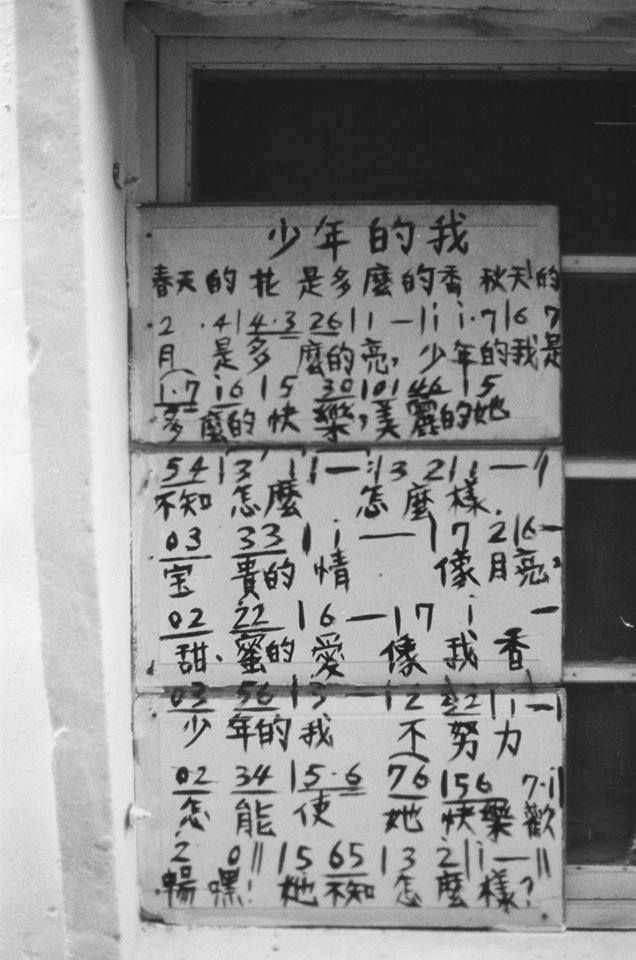 少年的我
春天的花 是多麼的香 秋天的
2 . 4 | 4·3 26 | 1 — | i i·7 | 6 7
月 是多 麼的亮, 少年的我是
1·7 i6 | 5 30 | 01 46 | 5
多 麼的快 樂,美 麗的她
54 | 3 i | 1 — | 3 2 | i — |
不知 怎麼 怎麼樣.
03 33 | i — | 7 2 | 6 —
宝 貴的 情 像月亮,
02 22 | 6 — | 7 i —
甜.蜜的愛 像我香
03 56 | 3 — | 2 32 | i — |
少 年的我 不努力
02 34 | 5·6 76 | 56 7·i |
怎 能 使 她 快樂歡
2 0 || 5 65 | 3 2 | i — ||
暢 嘿! 她不知 怎麼樣?